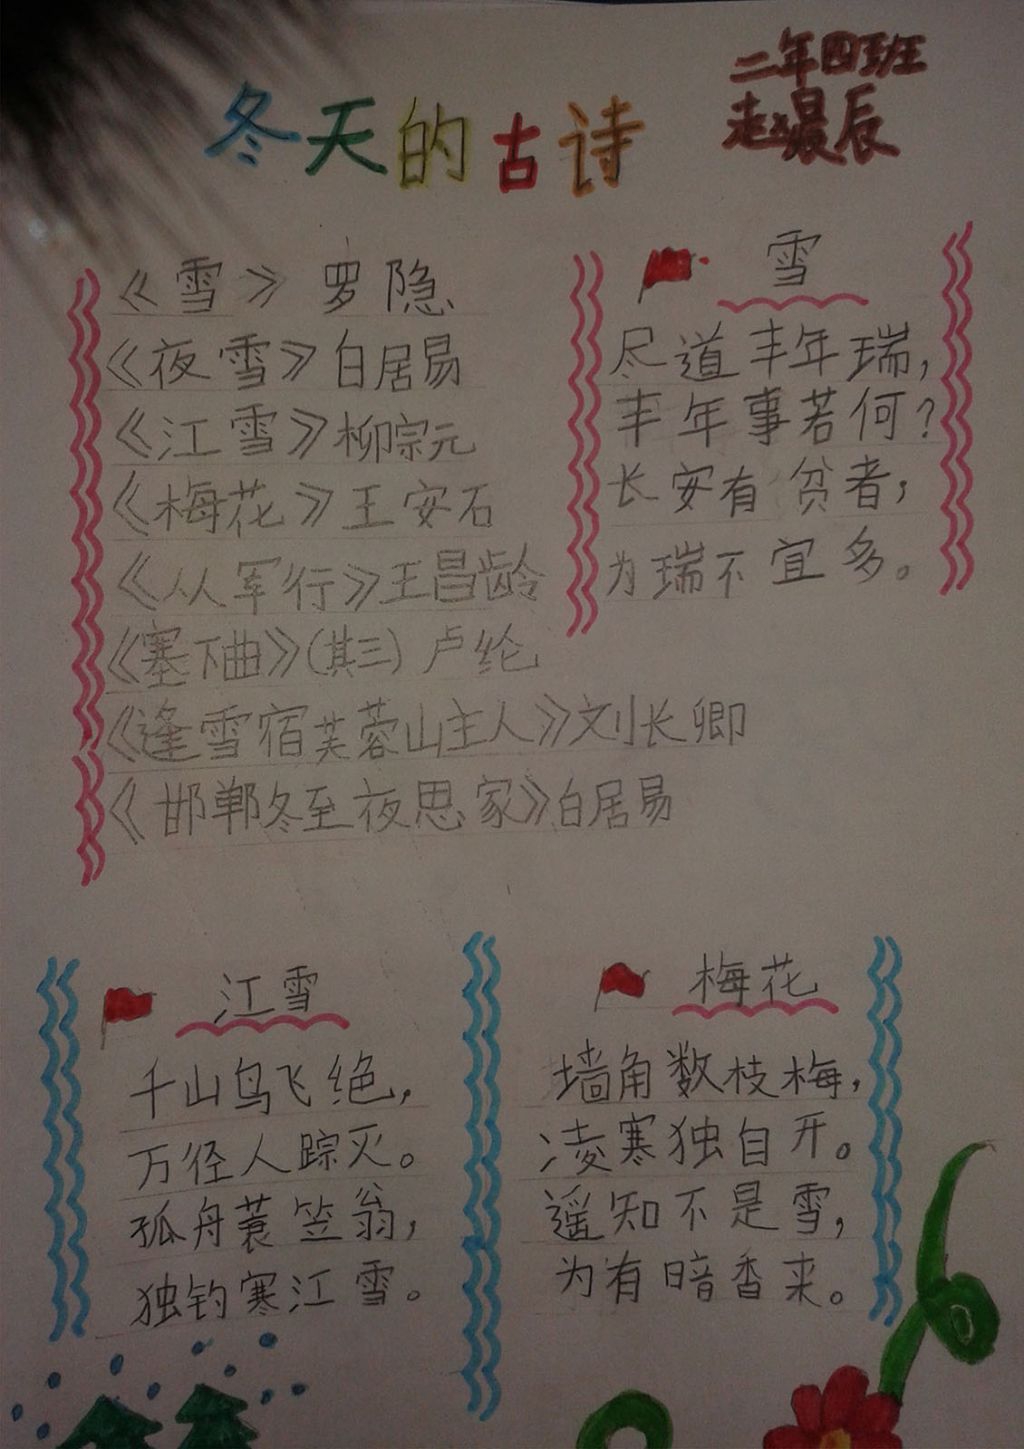 冬天的古诗
二年四班
赵晨辰
《雪》 罗隐
《夜雪》白居易
《江雪》柳宗元
《梅花》王安石
《从军行》王昌龄
《塞下曲》(其三) 卢纶
《逢雪宿芙蓉山主人》刘长卿
《邯郸冬至夜思家》白居易
雪
尽道丰年瑞,
丰年事若何?
长安有贫者,
为瑞不宜多。
江雪
千山鸟飞绝,
万径人踪灭。
孤舟蓑笠翁,
独钓寒江雪。
梅花
墙角数枝梅,
凌寒独自开。
遥知不是雪,
为有暗香来。